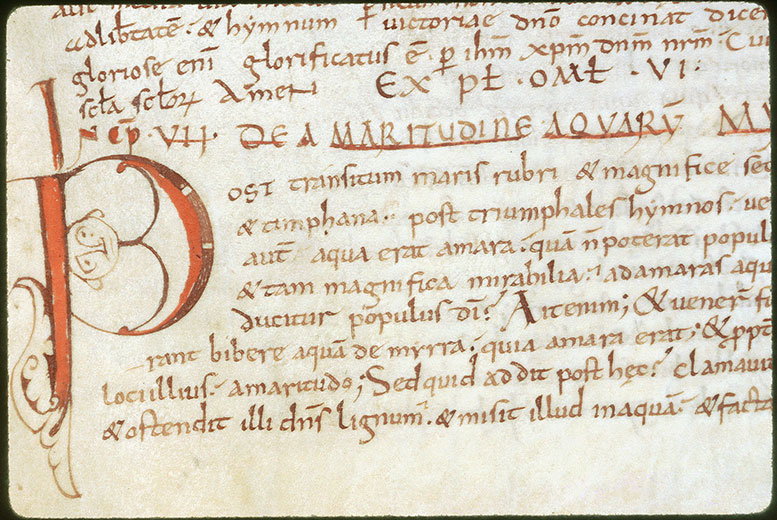 & hymnum victoriae dno concinat dicen
adlibtatē
gloriose eni glorificatus ē p ihm xpm dnm nrm Cui
scła scłor Amen
EX PŁ OMŁ VI:
INCP VII DE AMARITUDINE AQUARŪ MY
POST transitum maris rubri & magnifice sec
& timphana. post triumphales hymnos. ve
aut aqua erat amara. quā n poterat popul
& tam magnifica mirabilia. ad amaras aqu
ducitur populus di? Ait enim; & venerst fi
rant bibere aquā de myrra. quia amara erat; & ppt
loci illius. amaritudo; Sed quid addit post hęc? clamavit
& ostendit illi dns lignum. & misit illud in aquā. & facta